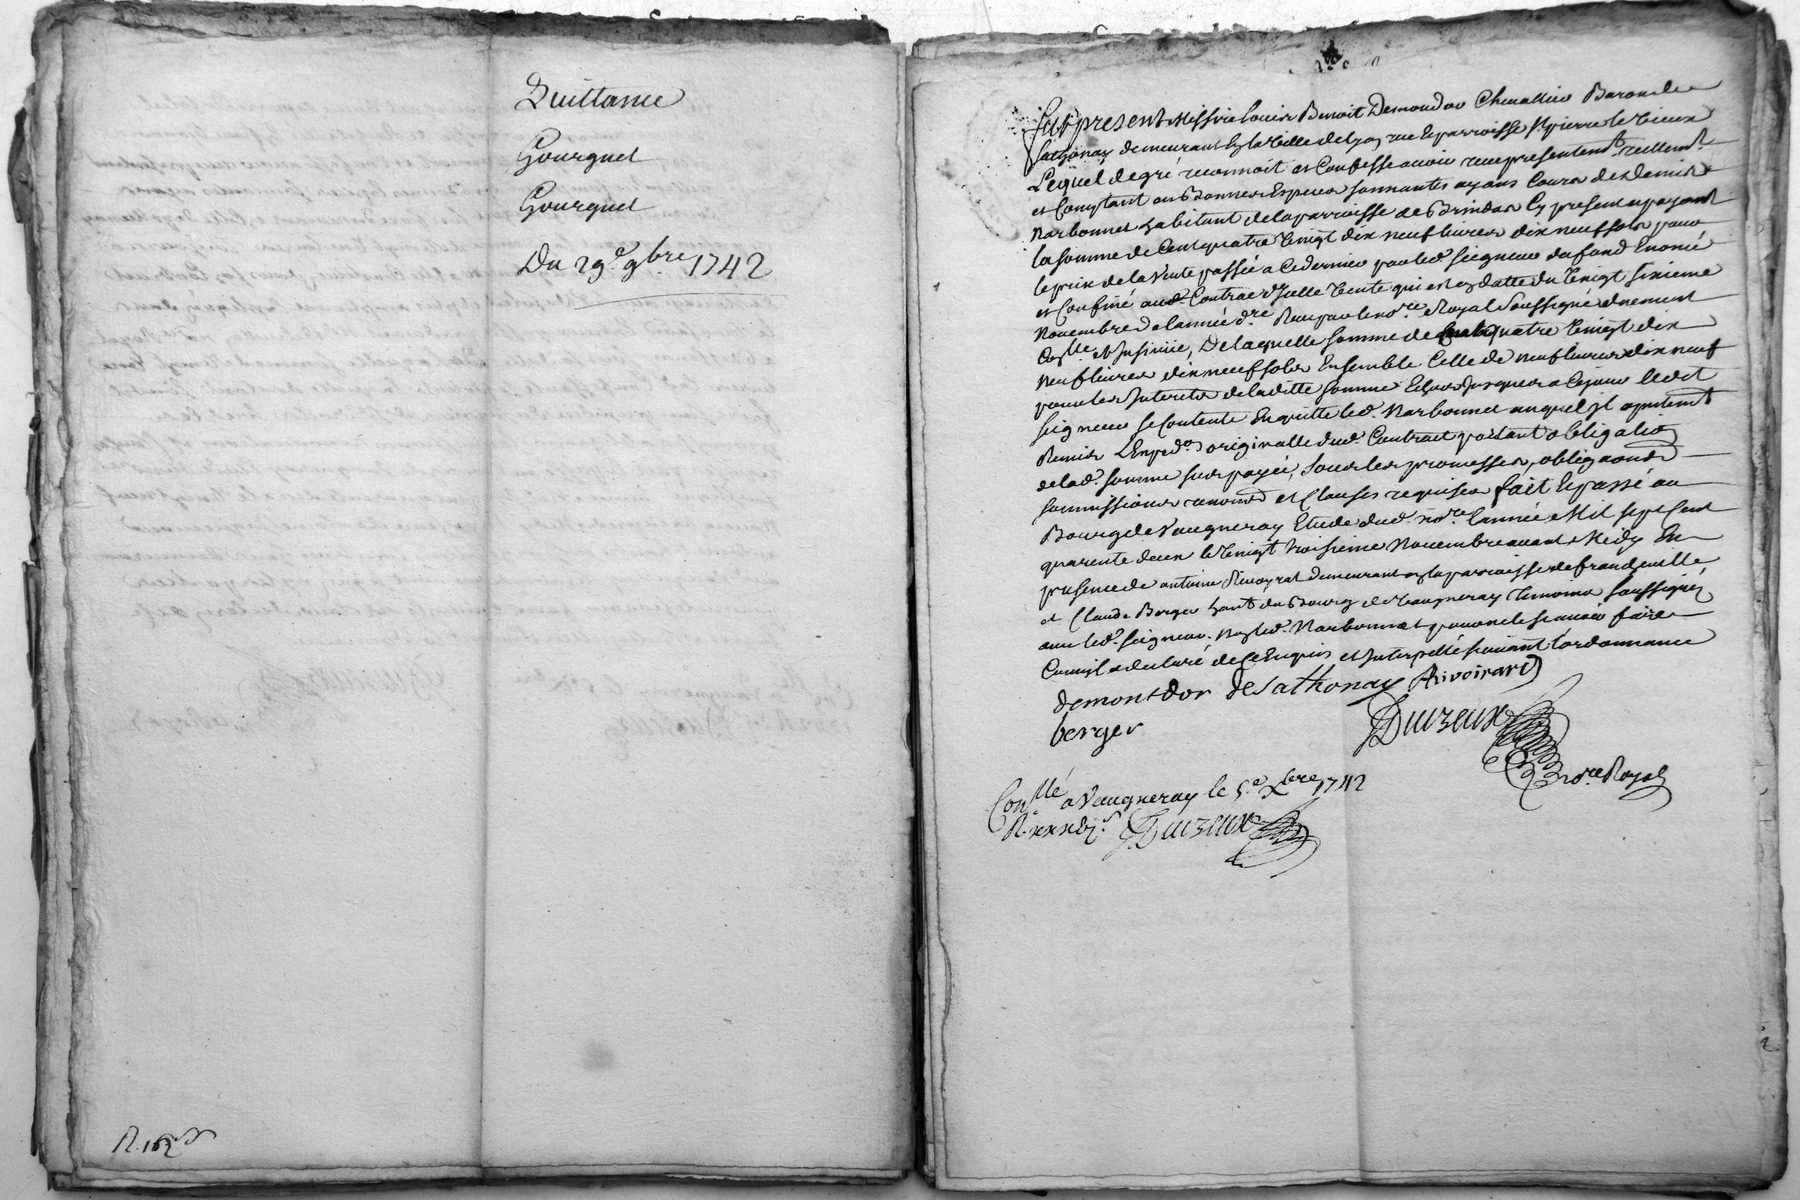 Quittance
Gourguet
Gourguet
Du 29.e 9bre 1742
R. 16
fut present Messire Louis Benoit Demondor Chevallier Baron de
Sathonay demeurant en la Ville de Lyon rue & parroisse St pierre le Vieux
Lequel de gré reconnoit et Confesse avoir receu presentemt. reellemt.
et Comptant en Bonnes Especes sonnantes ayans Cours de Denis
Narbonnet habitant de la parroisse de Brindas Cy present & payant
la somme de Cent quatre Vingt dix neuf livres dix neuf sols pour
le prix de la Vente passée a Ce dernier par led. seigneur du fond Enoncé
et Confiné aud. Contract d'Jcelle Vente qui est en datte du Vingt sixieme
Novembre de l'année dre. Receu par le nore. Royal Soussigné duement
Conllé et Jnsinué, De laquelle somme de quatre Vingt dix
neuf livres dix neuf sols Ensemble Celle de neuf livres dix neuf
pour les Jnterets de laditte somme Echus jusques a Ce jour ledit
seigneur se Contente En quitte led. Narbonnet auquel Jl a
Remis L'Exped.on originalle dud. Contract portant obligation
de lad. somme sus payée, sous les promesses, obligaons
soumissions renonons et Clauses requises fait & passé au
Bourg de Vaugneray Etude dud. nore. l'année Mil sept Cent
quarente deux le Vingt troisieme Novembre avant Midy En
presence de antoine Rivoyrat demeurant en la parroisse de francheville
et Claude Berger hant du Bourg de Vaugneray temoins soussignés
avec led. seigneur. non led. Narbonnet pour ne le scavoir faire
Comme Jl a declaré de Ce Enquis et Jnterpellé suivant l'ordonnance
demontdor de Sathonay Rivoirard
berger Duizeux
nore Royal
Conllé a Vaugneray le 5.e Xbre 1742
R. Duizeux